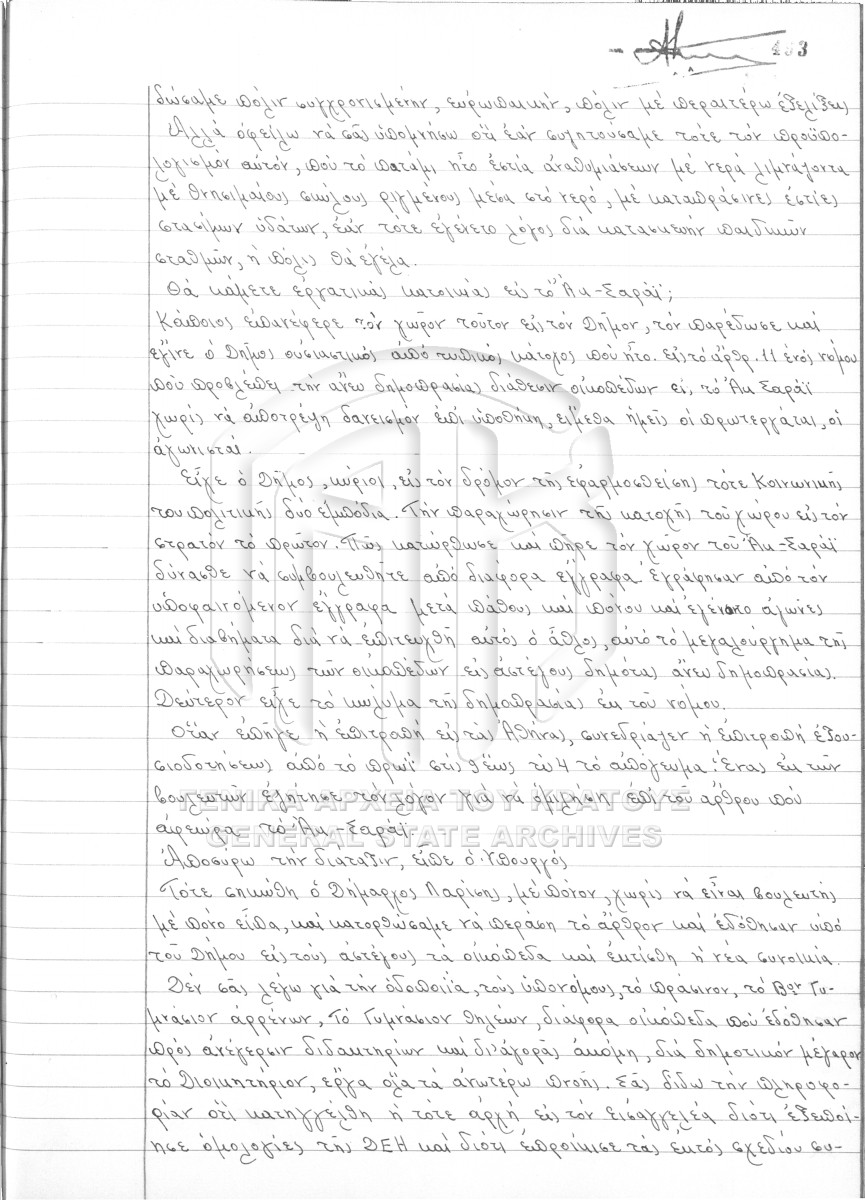 493
δώσαμε πόλιν συγχρονισμένην, εὐρωπαϊκήν, πόλιν μέ περαιτέρω ἐξελίξεις
Ἀλλά ὀφείλω νά σᾶς ὑπομνήσω ὅτι ἐάν συζητούσαμε τότε τόν προϋπο-
λογισμόν αὐτόν, πού τό ποτάμι ἦτο ἑστία ἀναθυμιάσεων μέ νερά λιμνάζοντα
μέ θνησιμαίους σκύλους ριγμένους μέσα στό νερό, μέ καταπράσινες ἑστίες
στασίμων ὑδάτων, ἐάν τότε ἐγένετο λόγος διά κατασκευήν παιδικῶν
σταθμῶν, ἡ πόλις θά ἐγέλα.
Θά κάμετε ἐργατικάς κατοικίας εἰς τό Ἀκ-Σαράϊ;
Κάποιος ἐπανέφερε τόν χῶρον τοῦτον εἰς τόν Δῆμον, τόν παρέδωσε καί
ἔγινε ὁ Δῆμος οὐσιαστικός ἀπό τυπικός κάτοχος πού ἦτο. Εἰς τό ἄρθρ. 11 ἑνός νόμου
πού προβλέπει τήν ἄνευ δημοπρασίας διάθεσιν οἰκοπέδων εἰς τό Ἀκ Σαράϊ
χωρίς νά ἀποτρέψη δανεισμόν ἐπί ὑποθήκη, εἴμεθα ἡμεῖς οἱ πρωτεργάται, οἱ
ἀγωνισταί.
Εἶχε ὁ Δῆμος, κύριοι, εἰς τόν δρόμον τῆς ἐφαρμοσθείσης τότε Κοινωνικῆς
του πολιτικῆς δύο ἐμπόδια. Τήν παραχώρησιν τῆς κατοχῆς τοῦ χώρου εἰς τόν
στρατόν τό πρῶτον. Πῶς κατώρθωσε καί πῆρε τόν χῶρον τοῦ Ἀκ-Σαράϊ
δύνασθε νά συμβουλευθῆτε ἀπό διάφορα ἔγγραφα. Ἐγράφησαν ἀπό τόν
ὑποφαινόμενον ἔγγραφα μετά πάθους καί πόνου καί ἐγένοντο ἀγῶνες
καί διαβήματα διά νά ἐπιτευχθῆ αὐτός ὁ ἆθλος, αὐτό τό μεγαλούργημα τῆς
παραχωρήσεως τῶν οἰκοπέδων εἰς ἀστέγους δημότας ἄνευ δημοπρασίας.
Δεύτερον εἶχε τό κώλυμα τῆς δημοπρασίας ἐκ τοῦ νόμου.
Ὅταν ἐπῆγε ἡ ἐπιτροπή εἰς τάς Ἀθήνας, συνεδρίαζεν ἡ ἐπιτροπή ἐξου-
σιοδοτήσεως ἀπό τό πρωΐ στίς 9 ἕως τίς 4 τό ἀπόγευμα. Ἕνας ἐκ τῶν
βουλευτῶν ἐζήτησε τόν λόγον γιά νά ὁμιλήση ἐπί τοῦ ἄρθρου πού
ἀφεώρα τό Ἀκ-Σαράϊ
Ἀποσύρω τήν διάταξιν, εἶπε ὁ Ὑπουργός
Τότε σηκώθη ὁ Δήμαρχος Παρίσης, μέ πόνον, χωρίς νά εἶναι βουλευτής
μέ πόνο εἶπα, καί κατορθώσαμε νά περάση τό ἄρθρον καί ἐδόθησαν ὑπό
τοῦ Δήμου εἰς τούς ἀστέγους τά οἰκόπεδα καί ἐκτίσθη ἡ νέα συνοικία.
Δέν σᾶς λέγω γιά τήν ὁδοποιΐα, τούς ὑπονόμους, τό πράσινον, τό Βον Γυ-
μνάσιον ἀρρένων, Τό Γυμνάσιον θηλέων, διάφορα οἰκόπεδα πού ἐδόθησαν
πρός ἀνέγερσιν διδακτηρίων καί δι' ἀγοράς ἀκόμη, διά δημοτικόν μέγαρον
τό Διοικητήριον, ἔργα ὅλα τά ἀνωτέρω πνοῆς. Σᾶς δίδω τήν πληροφο-
ρίαν ὅτι κατηγγέλθη ἡ τότε ἀρχή εἰς τόν εἰσαγγελέα διότι ἐξεποί-
ησε ὁμολογίες τῆς ΔΕΗ καί διότι ἐπροίκισε τάς ἐκτός σχεδίου συ-
ΓΕΝΙΚΑ ΑΡΧΕΙΑ ΤΟΥ ΚΡΑΤΟΥΣ
GENERAL STATE ARCHIVES